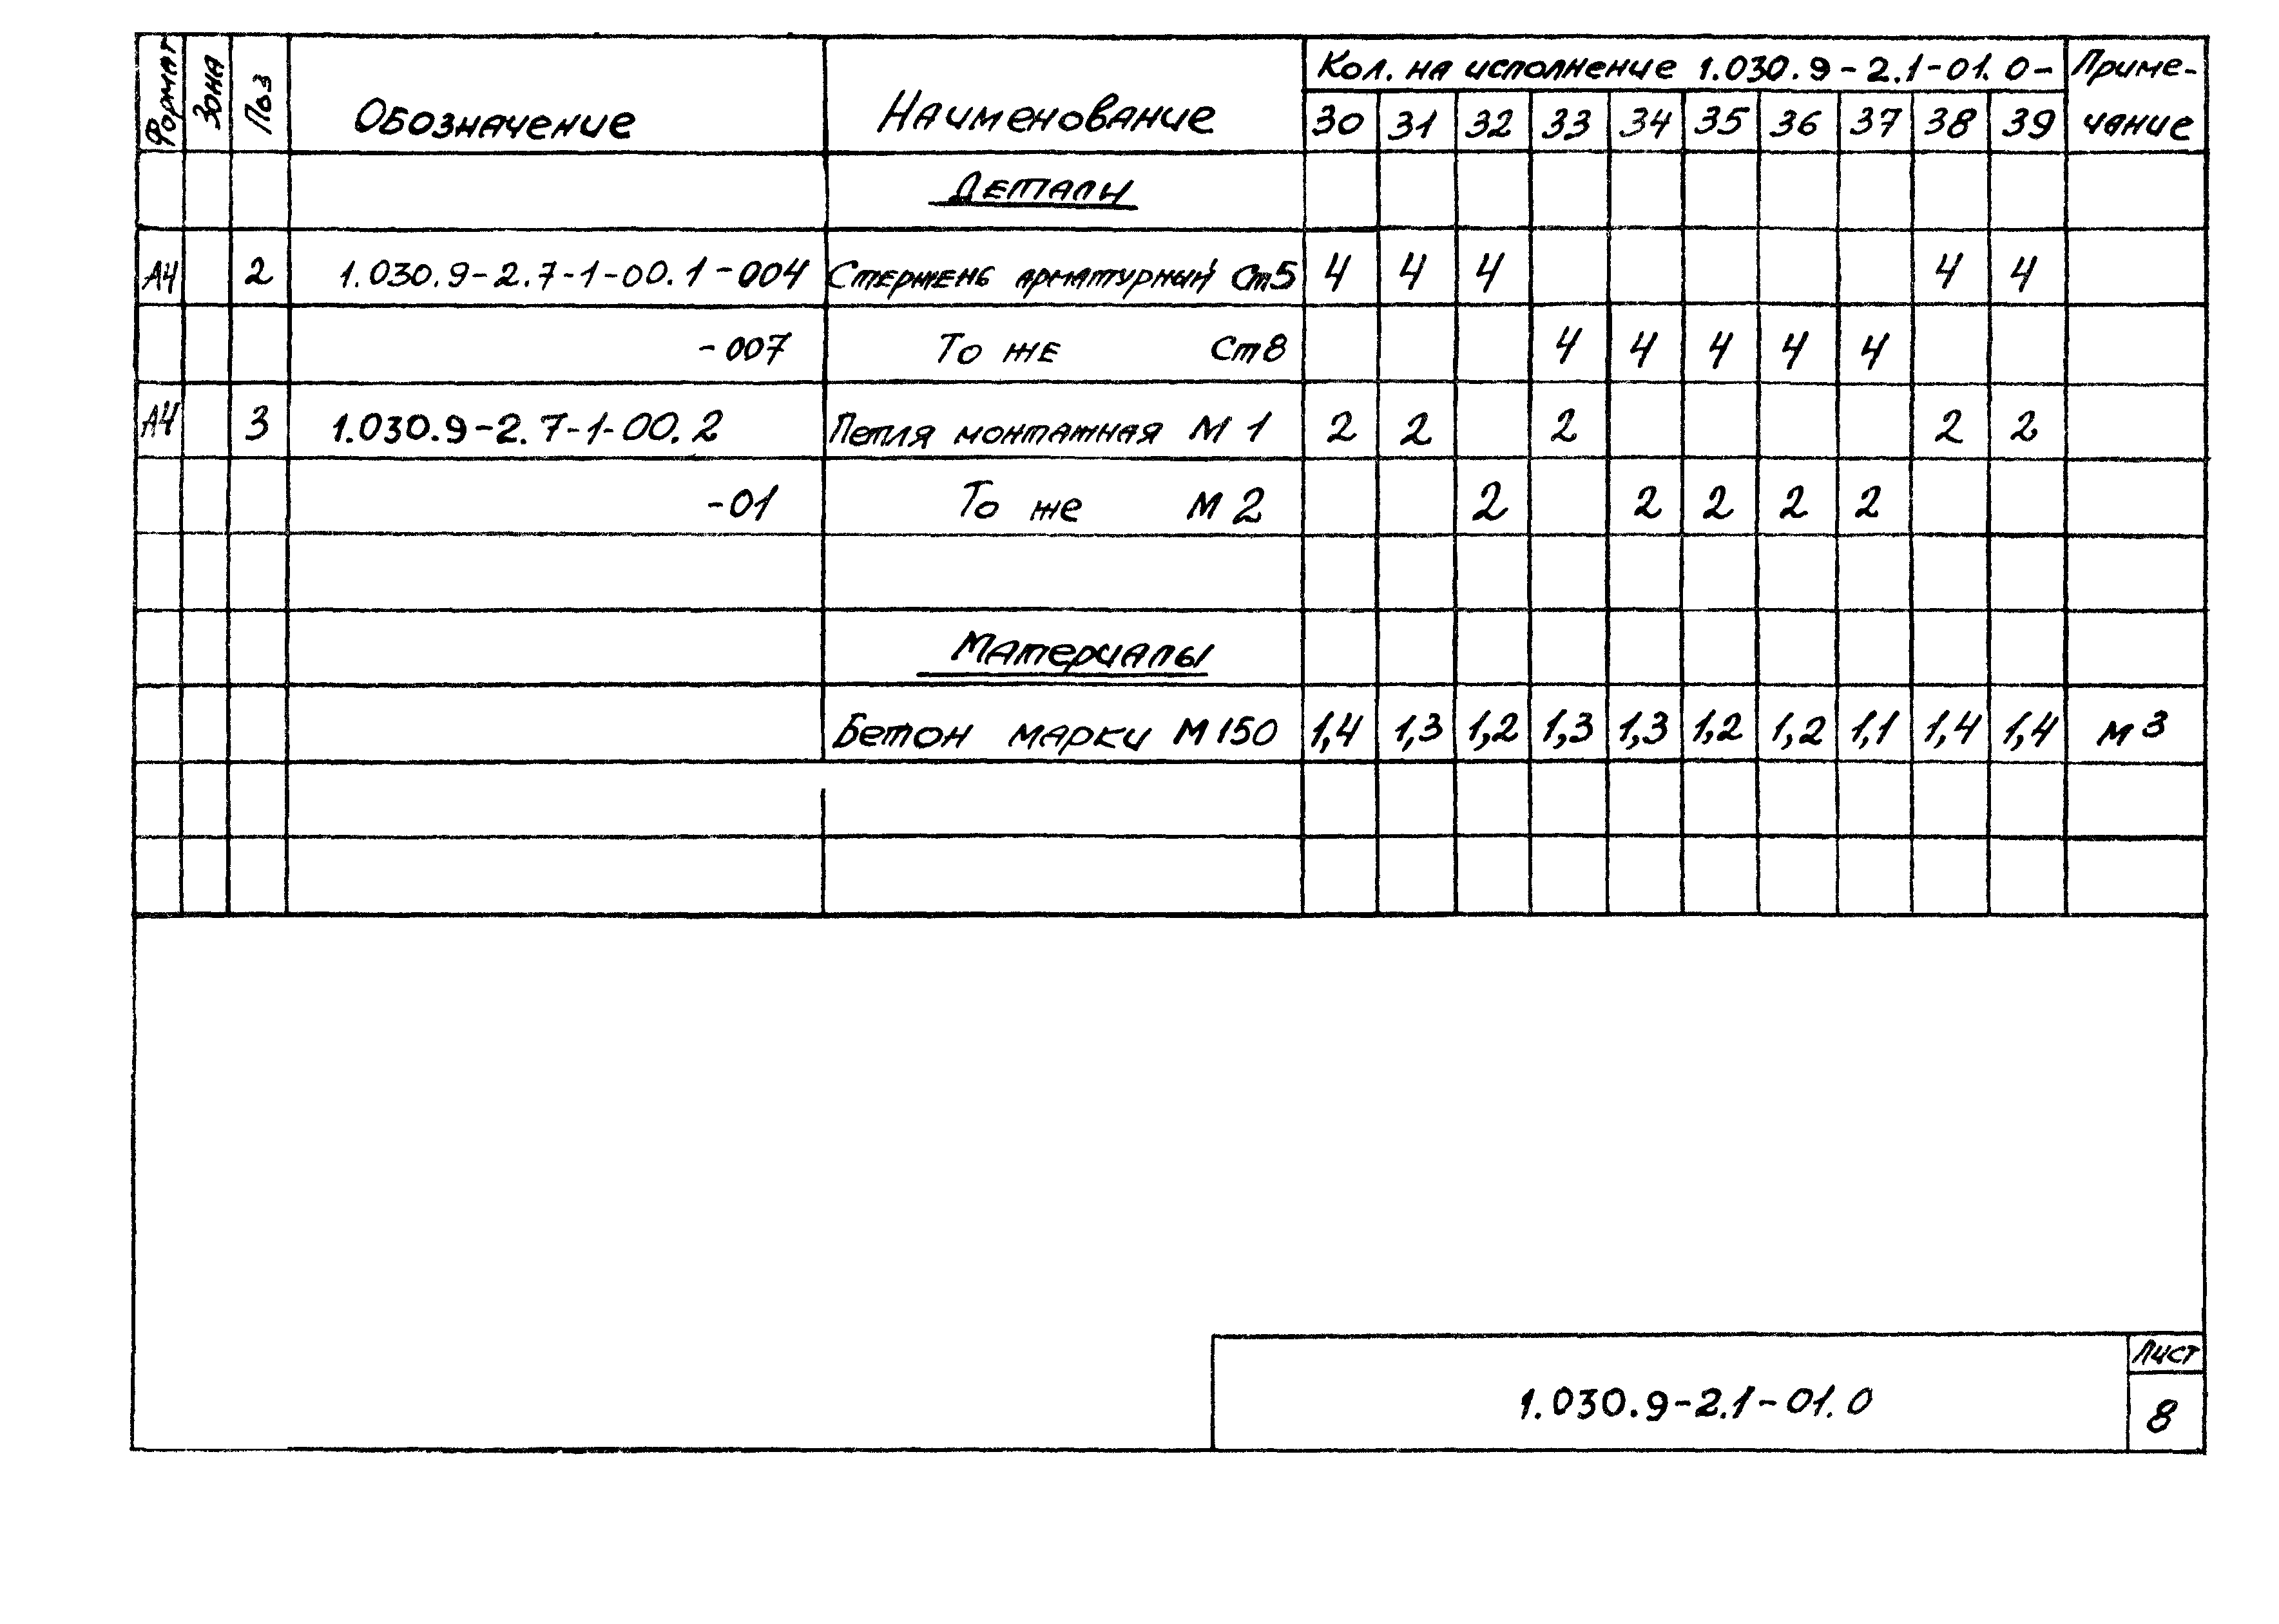 Формат Зона Поз Обозначение Наименование Кол. на исполнение 1.030.9-2.1-01.0- Приме-
30 31 32 33 34 35 36 37 38 39 чание
Детали
А4 2 1.030.9-2.7-1-00.1-004 Стержень арматурный Ст5 4 4 4 4 4
-007 То же Ст8 4 4 4 4 4
А4 3 1.030.9-2.7-1-00.2 Петля монтажная М1 2 2 2 2 2
-01 То же М2 2 2 2 2 2
Материалы
Бетон марки М150 1,4 1,3 1,2 1,3 1,3 1,2 1,2 1,1 1,4 1,4 м3
Лист
1.030.9-2.1-01.0
8